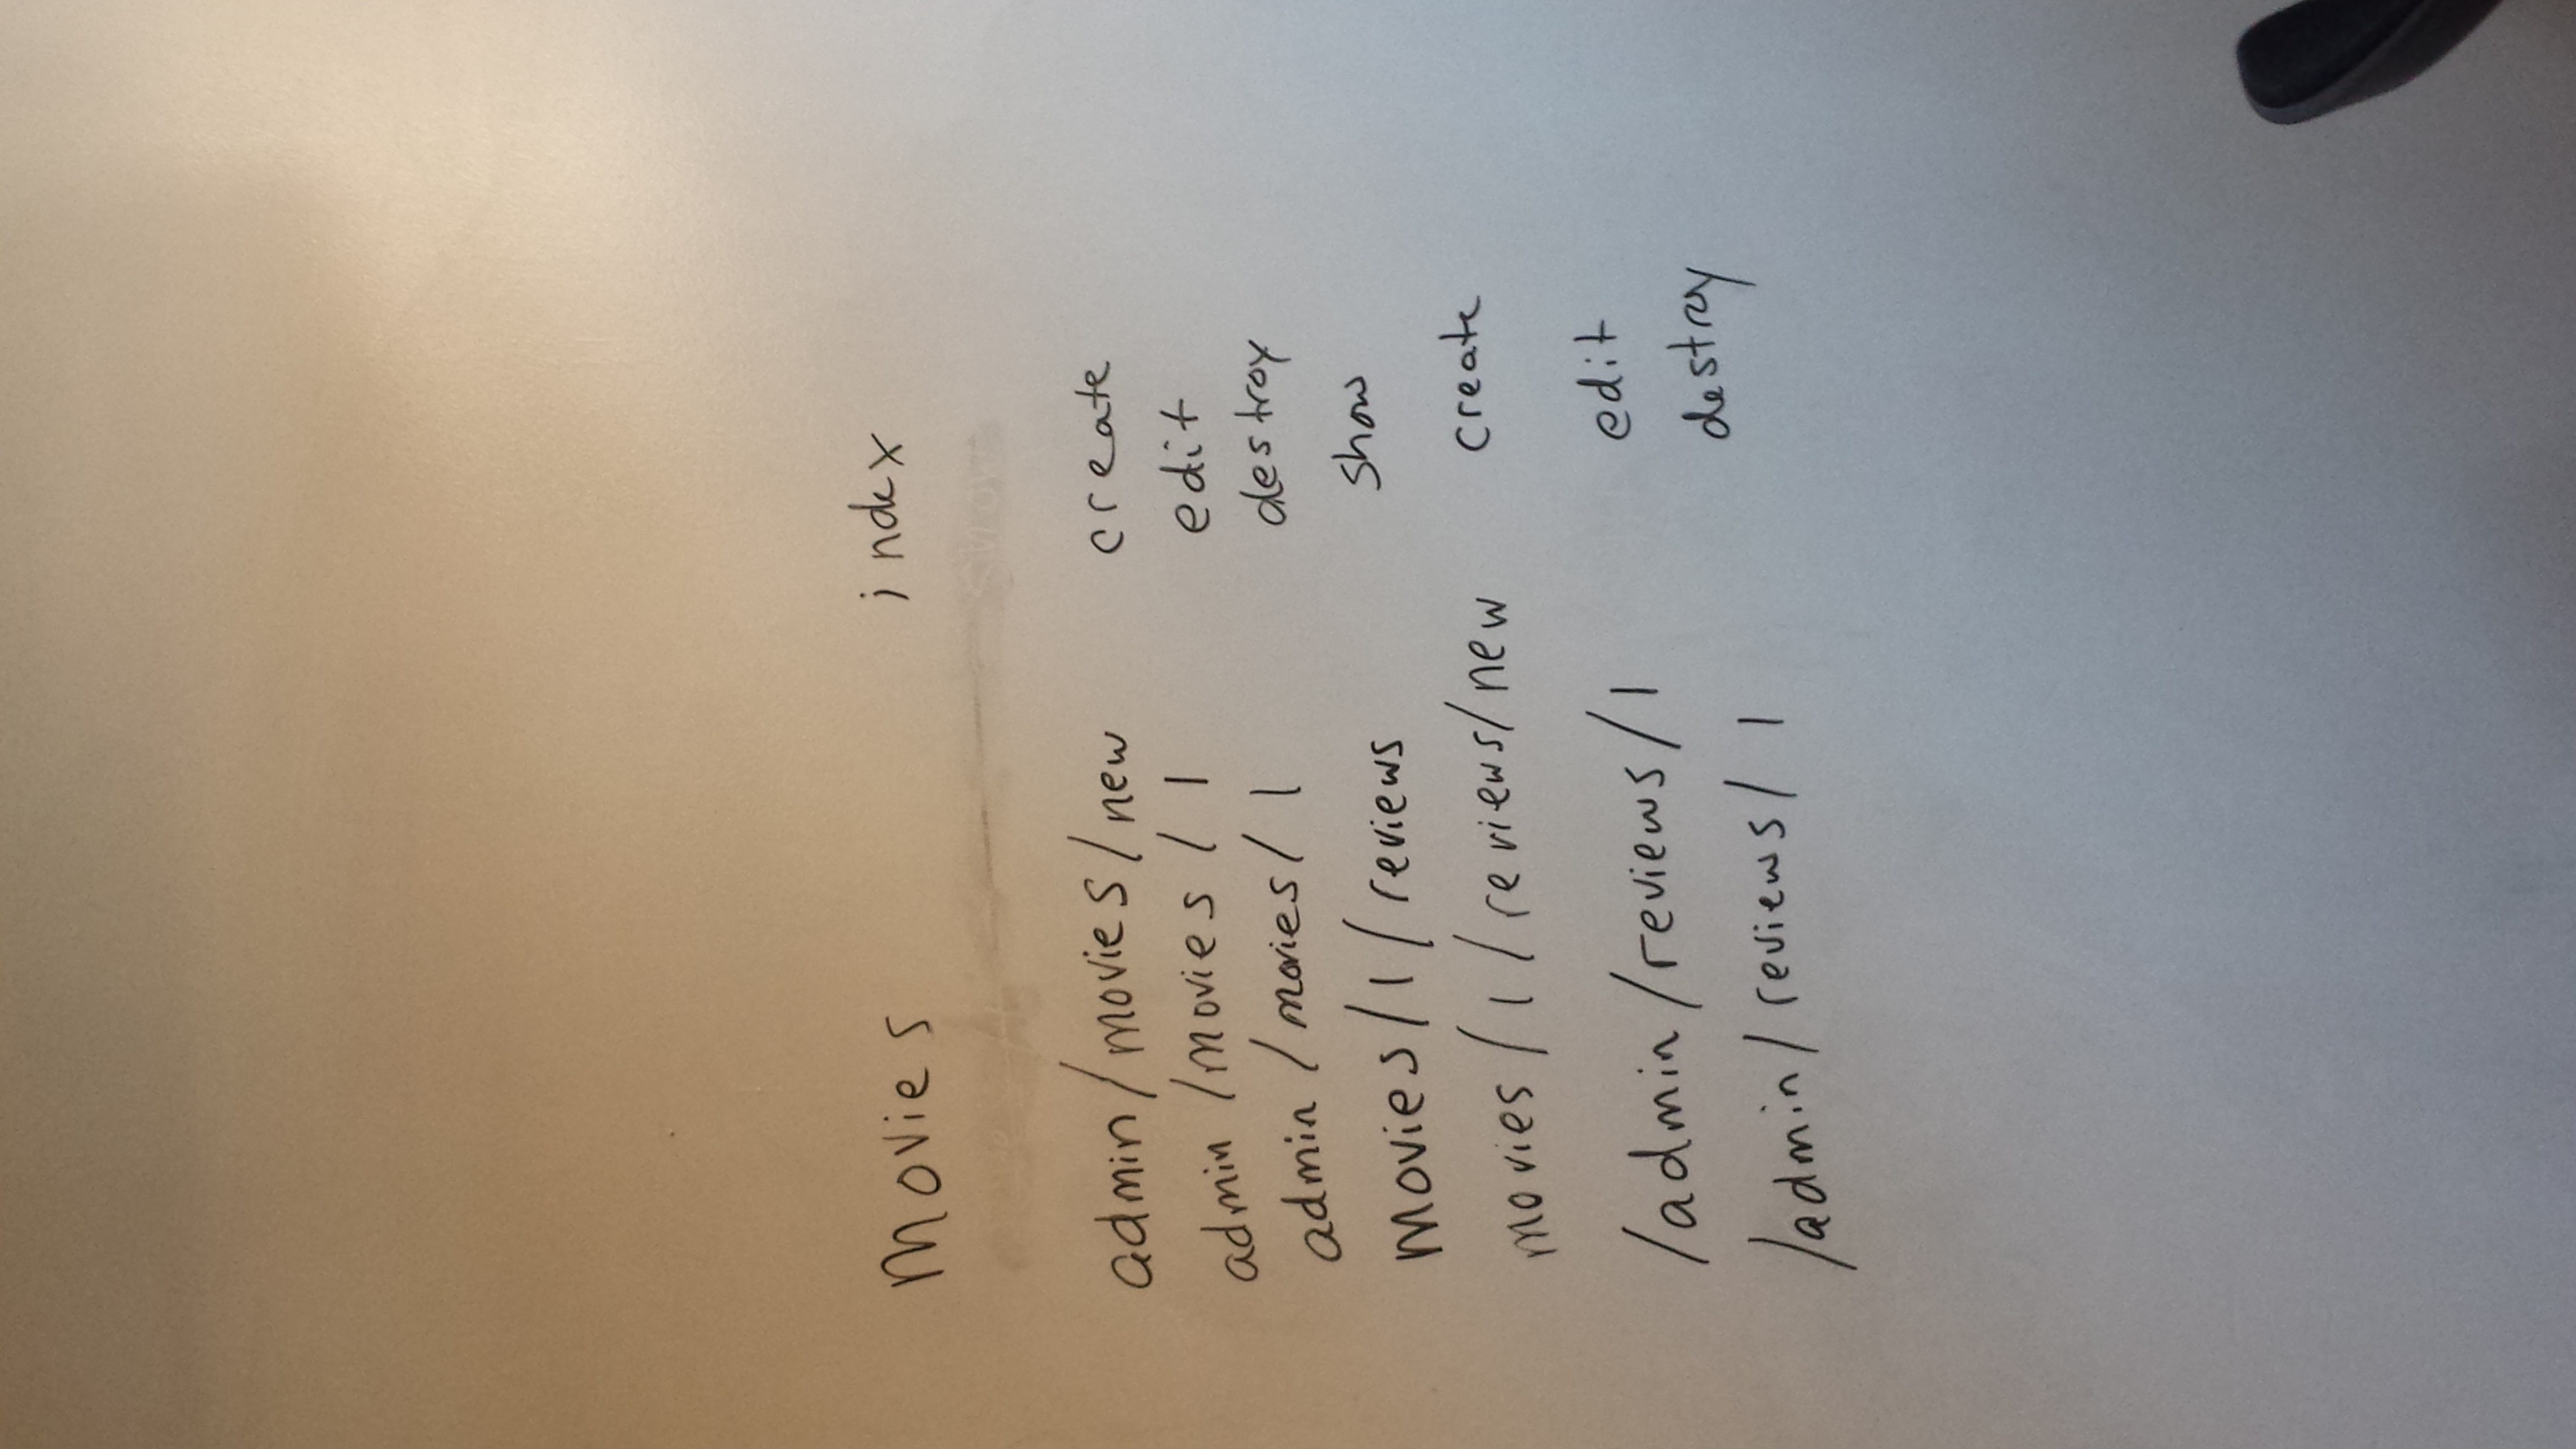 Movies index
admin/movies/new create
admin/movies/1 edit
admin/movies/1 destroy
Movies/1/reviews show
movies/1/reviews/new create
/admin/reviews/1 edit
/admin/reviews/1 destroy